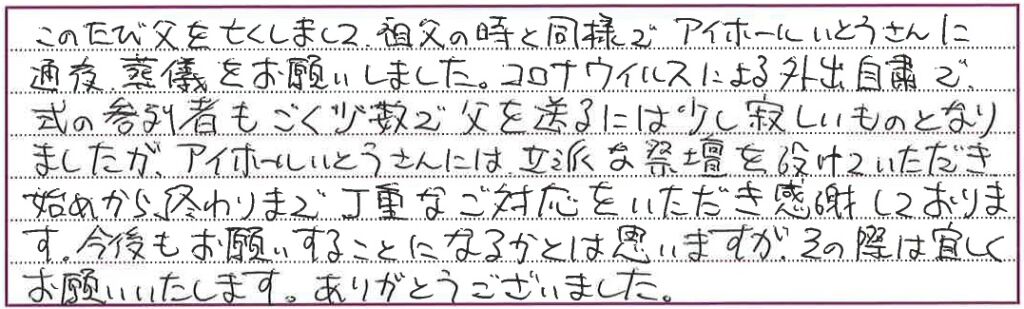 このたび父を亡くしまして、祖父の時と同様で アイホールいとうさんに
通夜、葬儀をお願いしました。コロナウイルスによる外出自粛で、
式の参列者もごく少数で父を送るには少し寂しいものとなり
ましたが、アイホールいとうさんには、立派な祭壇を設けていただき
始めから、終わりまで丁重なご対応をいただき感謝しておりま
す。今後もお願いすることになるかとは思いますが、その際は宜しく
お願いいたします。ありがとうございました。